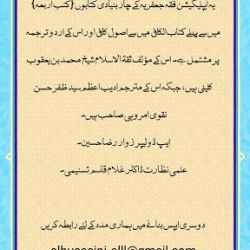 یہ ایپلیکیشن فقہ جعفریہ کے چار بنیادی کتابوں {کتب اربعہ}
میں سے پہلے کتاب الکافی میں سے اصول کافی اور اس کے اردو ترجمہ
پر مشتمل ہے۔ اس کے مؤلف ثقۃ الاسلام شیخ محمد بن یعقوب
کلینی ہیں، جبکہ اس کے مترجم ادیب اعظم سید ظفر حسن
نقوی امروہی صاحب ہیں۔
ایپ ڈولپر زوار رضا حسین۔
علمی نظارت ڈاکٹر غلام قاسم تسنیمی۔
دوسری ایپس بنانے میں ہماری مدد کے لئے رابطہ کریں